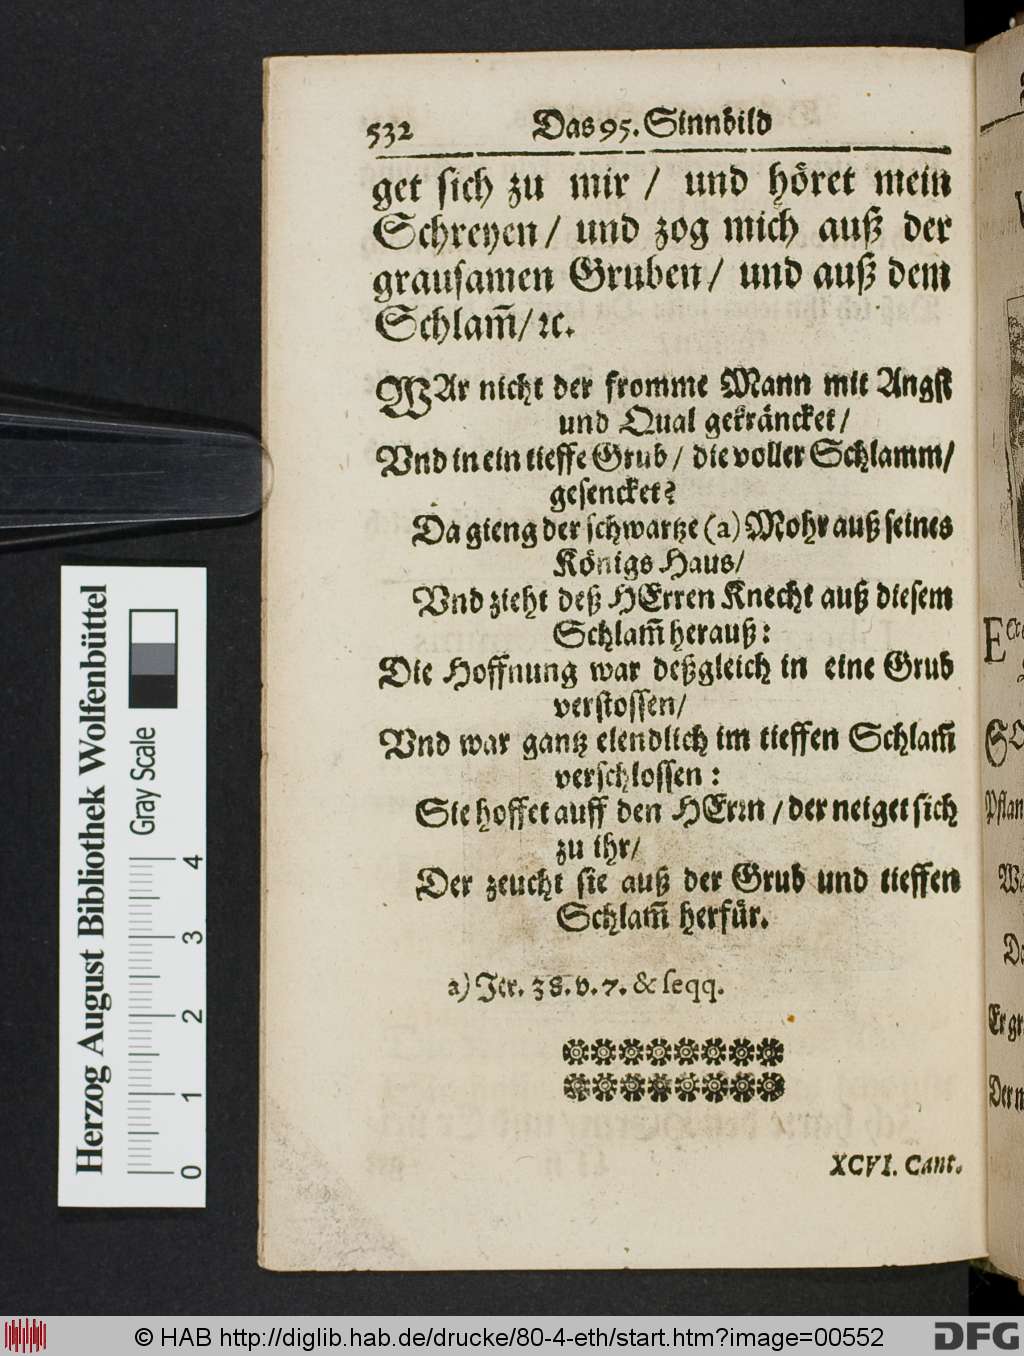 532 Das 95. Sinnbild
get sich zu mir / und höret mein
Schreyen / und zog mich auß der
grausamen Gruben / und auß dem
Schlam̃ / ꝛc.
WAr nicht der fromme Mann mit Angst
und Qual gekräncket /
Vnd in ein tieffe Grub / die voller Schlamm /
gesencket?
Da gieng der schwartze (a) Mohr auß seines
Königs Haus /
Vnd zieht deß HErren Knecht auß diesem
Schlam̃ herauß:
Die Hoffnung war deßgleich in eine Grub
verstossen /
Vnd war gantz elendlich im tieffen Schlam̃
verschlossen:
Sie hoffet auff den HErꝛn / der neiget sich
zu ihr /
Der zeucht sie auß der Grub und tieffen
Schlam̃ herfür.
a) Jer. 38. v. 7. & seqq.
XCVI. Cant.
Herzog August Bibliothek Wolfenbüttel
Gray Scale
0 1 2 3 4
© HAB http://diglib.hab.de/drucke/80-4-eth/start.htm?image=00552
DFG